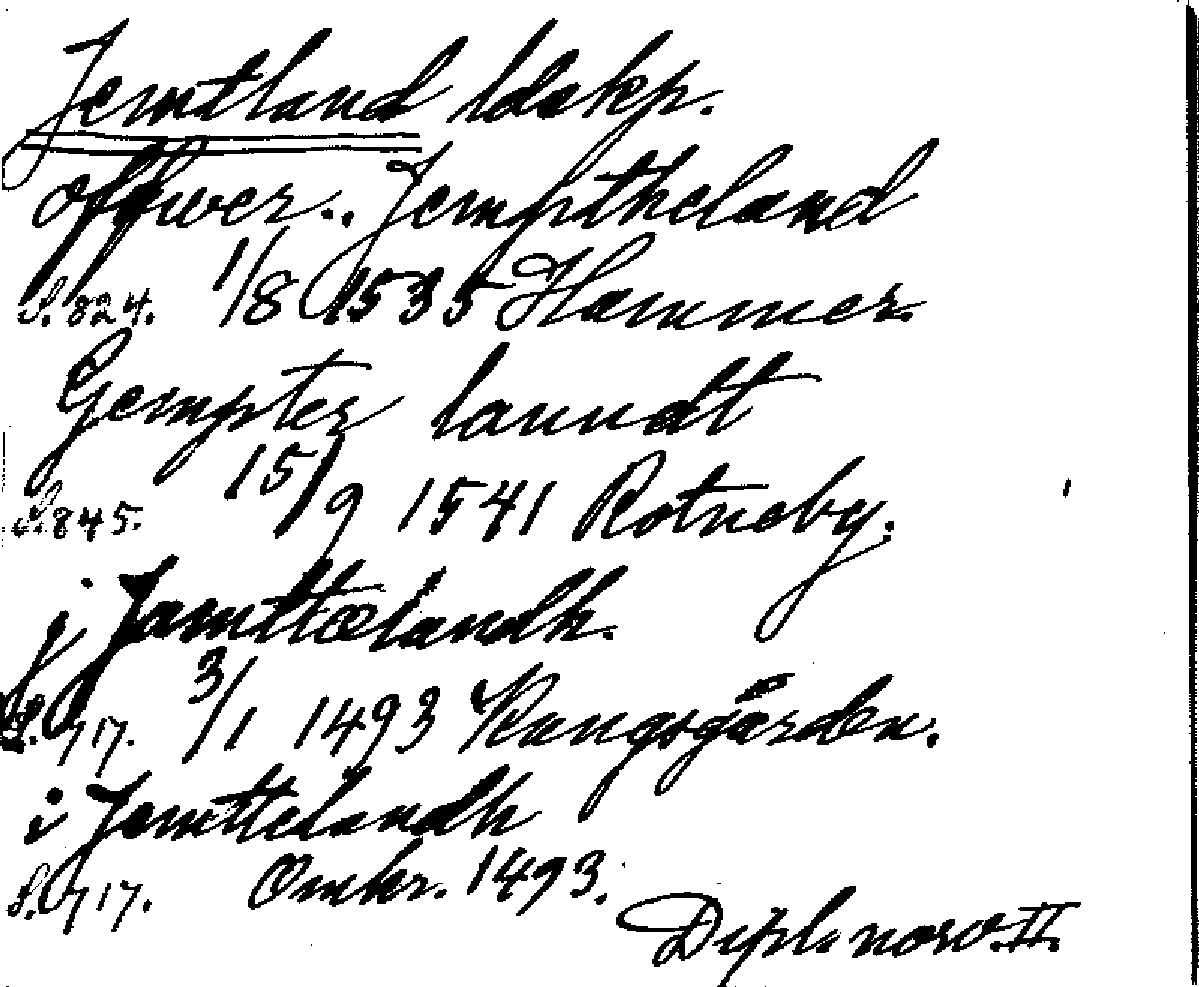 Jemtland ldskp.
offwer.. Jemptheland
S. 824. 1/8 1535 Hammer.
Gempter lanndt
S. 845. 15/9 1541 Rotneby.
j Jamttælandh.
S. 717. 3/1 1493 Kungsgården.
i Jemttelandh
S. 717. Omkr. 1493.
Dipl. norv. II.